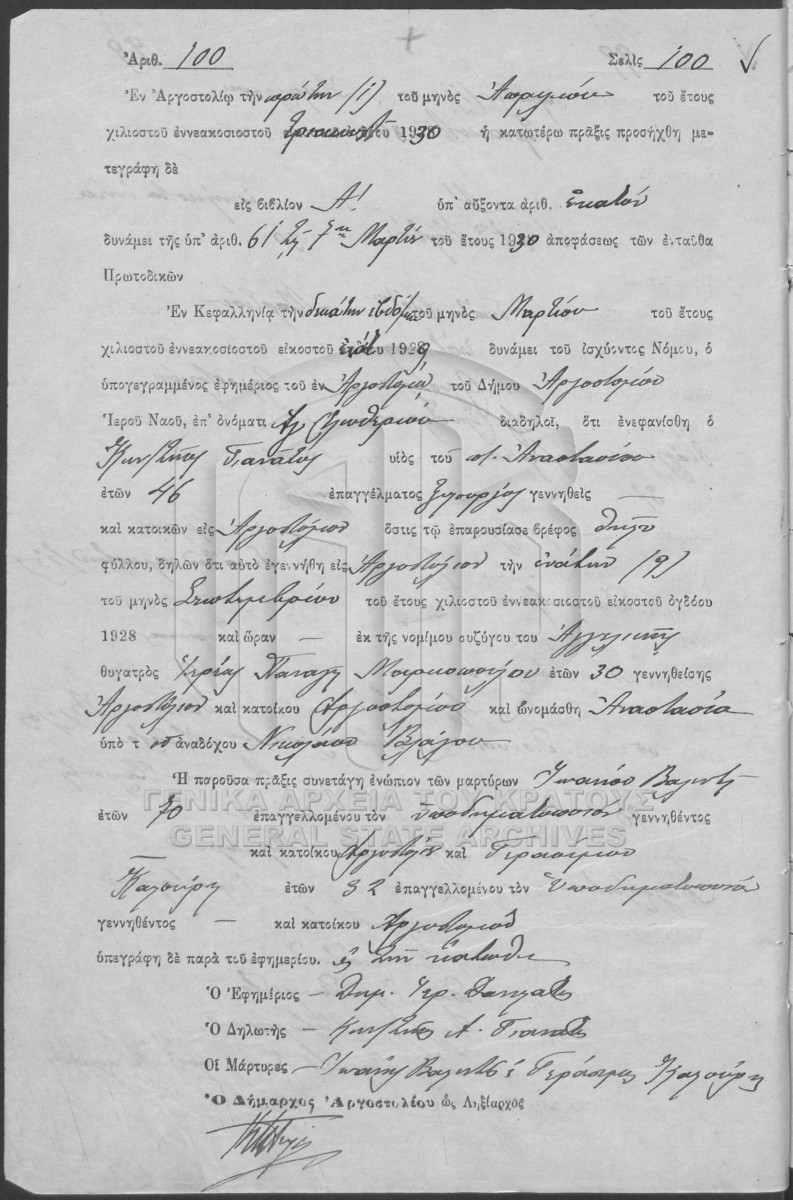 Ἀριθ. 100 Σελὶς 100
Ἐν Ἀργοστολίῳ τὴν πρώτην (1) τοῦ μηνὸς Ἀπριλίου τοῦ ἔτους
χιλιοστοῦ ἐννεακοσιοστοῦ 1930 ἡ κατωτέρω πρᾶξις προσήχθη με-
τεγράφη δὲ
εἰς βιβλίον Α! ὑπ' αὔξοντα ἀριθ. ἑκατόν
δυνάμει τῆς ὑπ' ἀριθ. 61 Μαρτίου τοῦ ἔτους 1930 ἀποφάσεως τῶν ἐνταῦθα
Πρωτοδικῶν
Ἐν Κεφαλληνίᾳ τὴν δεκάτην ἑβδόμην τοῦ μηνὸς Μαρτίου τοῦ ἔτους
χιλιοστοῦ ἐννεακοσιοστοῦ εἰκοστοῦ 1929 δυνάμει τοῦ ἰσχύοντος Νόμου, ὁ
ὑπογεγραμμένος ἐφημέριος τοῦ ἐν Ἀργοστολίῳ τοῦ Δήμου Ἀργοστολίου
Ἱεροῦ Ναοῦ, ἐπ' ὀνόματι Ἁγ. Ἐλευθερίου διαδηλοῖ, ὅτι ἐνεφανίσθη ὁ
Κωνστῖνος Γιανάτος υἱὸς τοῦ π. Ἀναστασίου
ἐτῶν 46 ἐπαγγέλματος ξυλουργὸς γεννηθεὶς —
καὶ κατοικῶν εἰς Ἀργοστόλιον ὅστις τῷ ἐπαρουσίασε βρέφος θήλεος
φύλλου, δηλῶν ὅτι αὐτὸ ἐγεννήθη εἰς Ἀργοστόλιον τὴν ἐνάτην (9)
τοῦ μηνὸς Σεπτεμβρίου τοῦ ἔτους χιλιοστοῦ ἐννεακοσιοστοῦ εἰκοστοῦ ὀγδόου
1928 καὶ ὥραν — ἐκ τῆς νομίμου συζύγου του Ἀγγελικῆς
θυγατρὸς Ἱερέως Παναγῆ Μαρκοπούλου ἐτῶν 30 γεννηθείσης
Ἀργοστόλιον καὶ κατοίκου Ἀργοστολίου καὶ ὠνομάσθη Ἀναστασία
ὑπὸ τοῦ ἀναδόχου Νικολάου
Ἡ παροῦσα πρᾶξις συνετάγη ἐνώπιον τῶν μαρτύρων Ἰωάννου Βαλεντῆ
ΓΕΝΙΚΑ ΑΡΧΕΙΑ ΤΟΥ ΚΡΑΤΟΥΣ
ἐτῶν 70 ἐπαγγελλομένου τὸν ὑποδηματοποιὸν γεννηθέντος
GENERAL STATE ARCHIVES
— καὶ κατοίκου Ἀργοστολίου καὶ Γερασίμου
Καλούρη ἐτῶν 32 ἐπαγγελλομένου τὸν Ὑποδηματοποιὸν
γεννηθέντος — καὶ κατοίκου Ἀργοστολίου
ὑπεγράφη δὲ παρὰ τοῦ ἐφημερίου. κάτωθι
Ὁ Ἐφημέριος – Δημ. Ἱερ.
Ὁ Δηλωτὴς – Κωνστῖνος Α. Γιανάτος
Οἱ Μάρτυρες – Ἰωάννης Βαλεντῆς Γεράσιμος Καλούρης
Ὁ Δήμαρχος Ἀργοστολίου ὡς Ληξίαρχος